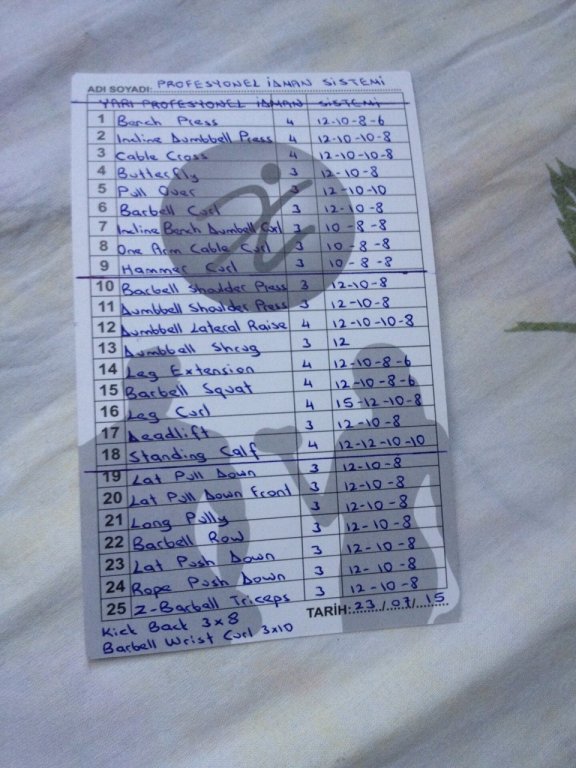 ADI SOYADI: PROFESYONEL İDMAN SİSTEMİ
YARI PROFESYONEL İDMAN SİSTEMİ
1 Bench Press 4 12-10-8-6
2 Incline Dumbbell Press 4 12-10-10-8
3 Cable Cross 4 12-10-10-8
4 Butterfly 3 12-10-8
5 Pull Over 3 12-10-10
6 Barbell Curl 3 12-10-8
7 Incline Bench Dumbell Curl 3 10-8-8
8 One Arm Cable Curl 3 10-8-8
9 Hammer Curl 3 10-8-8
10 Barbell Shoulder Press 3 12-10-8
11 Dumbbell Shoulder Press 3 12-10-8
12 Dumbbell Lateral Raise 4 12-10-10-8
13 Dumbbell Shrug 3 12
14 Leg Extension 4 12-10-8-6
15 Barbell Squat 4 12-10-8-6
16 Leg Curl 4 15-12-10-8
17 Deadlift 3 12-10-8
18 Standing Calf 4 12-12-10-10
19 Lat Pull Down 3 12-10-8
20 Lat Pull Down Front 3 12-10-8
21 Long Pully 3 12-10-8
22 Barbell Row 3 12-10-8
23 Lat Push Down 3 12-10-8
24 Rope Push Down 3 12-10-8
25 Z-Barbell Triceps 3 12-10-8
TARİH: 23/07/15
Kick Back 3x8
Barbell Wrist Curl 3x10